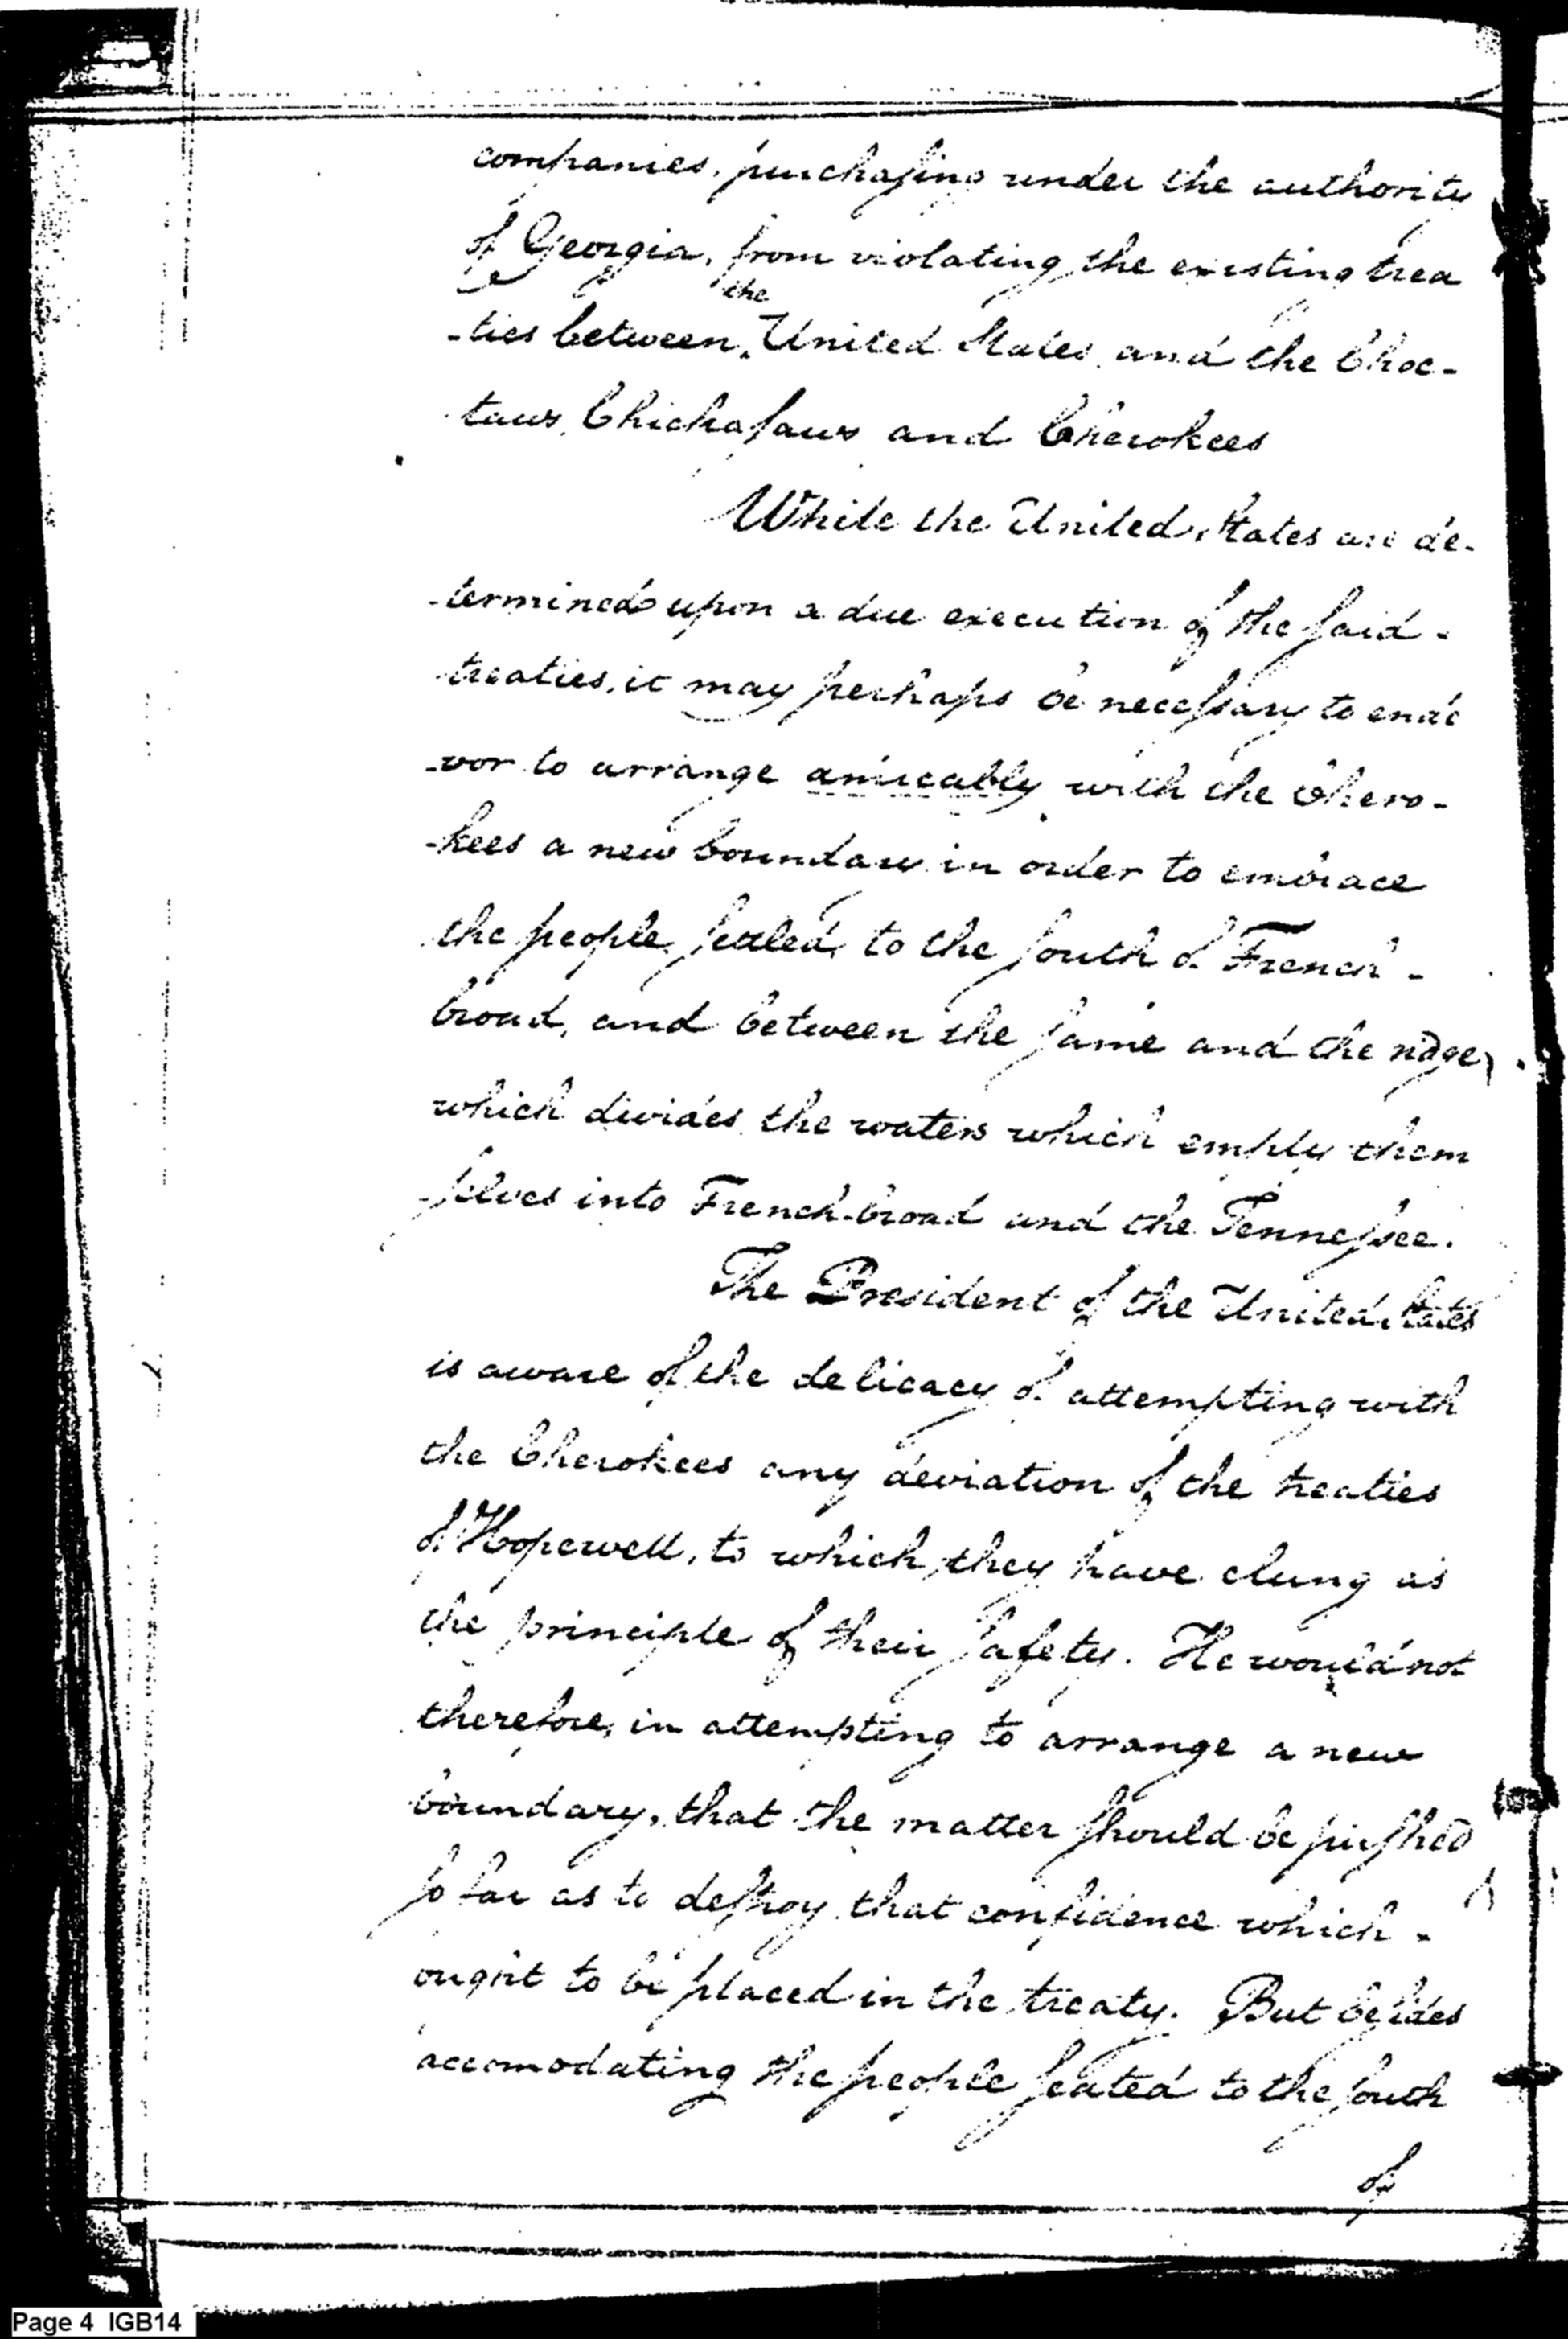 companies, purchasing under the authority
of Georgia, from violating the existing trea
the
-ties between United States and the Choc-
taws, Chickasaws and Cherokees
While the United States are de-
-termined upon a due execution of the said -
treaties, it may perhaps be necessary to ende
-vor to arrange amicably with the Chero-
-kees a new boundary in order to embrace
the people settled to the south of French -
broad, and between the same and the ridge,
which divides the waters which empty them
-selves into French-broad and the Tennessee.
The President of the United States
is aware of the delicacy of attempting with
the Cherokees any deviation of the treaties
of Hopewell, to which they have clung as
the principle of their safety. He would not
therefore, in attempting to arrange a new
boundary, that the matter should be pushed
so far as to destroy that confidence which -
ought to be placed in the treaty. But besides
accomodating the people seated to the south
of
Page 4 IGB14